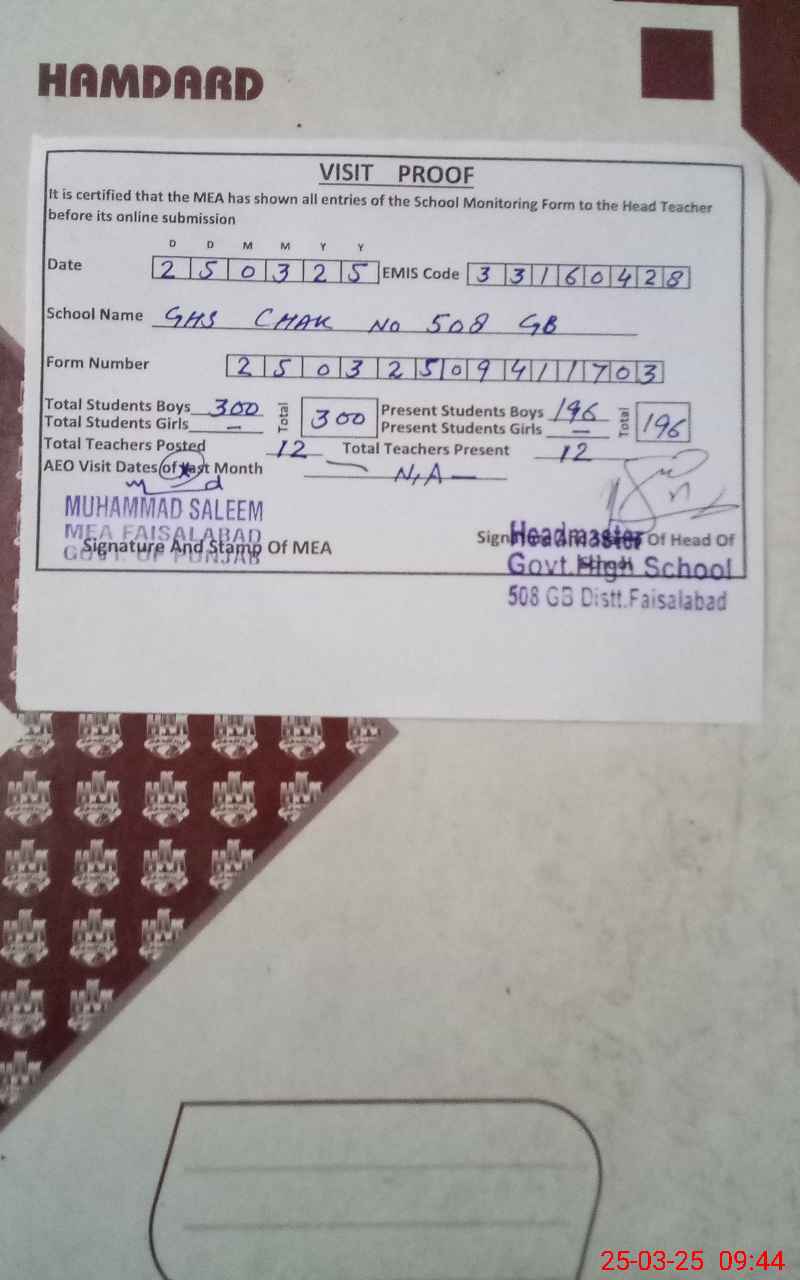 HAMDARD
VISIT PROOF
It is certified that the MEA has shown all entries of the School Monitoring Form to the Head Teacher
before its online submission
D D M M Y Y
Date 2 5 0 3 2 5 EMIS Code 3 3 1 6 0 4 2 8
School Name GHS CHAK NO 508 GB
Form Number 2 5 0 3 2 5 0 9 4 1 1 7 0 3
Total Students Boys 300 Total 300 Present Students Boys 196 Total 196
Total Students Girls — Present Students Girls —
Total Teachers Posted 12 Total Teachers Present 12
AEO Visit Dates of Last Month N,A
MUHAMMAD SALEEM
MEA FAISALABAD
GOVT. OF PUNJAB
Signature And Stamp Of MEA
Headmaster Of Head Of
Govt. High School
508 GB Distt. Faisalabad
25-03-25 09:44